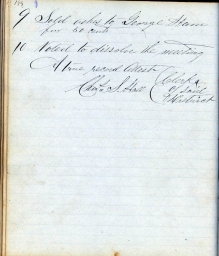 9 Sold ashes to George
for 50 cents
10 Voted to dissolve the meeting
A true record Attest
Chas S. Hall Clerk
of said
District